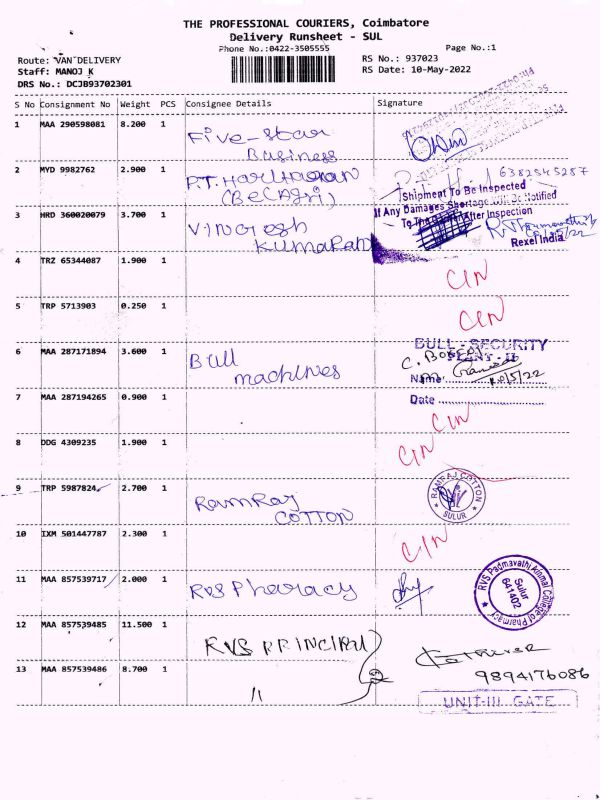 THE PROFESSIONAL COURIERS, Coimbatore
Delivery Runsheet - SUL
Phone No.:0422-3505555
Page No.:1
Route: VAN DELIVERY
RS No.: 937023
Staff: MANOJ K
RS Date: 10-May-2022
DRS No.: DCJB93702301
S No Consignment No Weight PCS Consignee Details Signature
1 MAA 290598081 8.200 1 Five-Star
Business
2 MYD 9982762 2.900 1 P.T. Hariharan 6382545287
Shipment To Be Inspected
If Any Damages Shortage will Be Notified
After Inspection
Rexel India
3 HRD 360020079 3.700 1
Kumaran
4 TRZ 65344087 1.900 1 CIN
5 TRP 5713903 0.250 1 CIN
6 MAA 287171894 3.600 1 Bull
machines
BULL - SECURITY
PLANT - II
Name 10/5/22
7 MAA 287194265 0.900 1 CIN
Date
8 DDG 4309235 1.900 1 CIN
9 TRP 5987824 2.700 1 Ramraj
COTTON
RAMRAJ COTTON
SULUR
10 IXM 501447787 2.300 1 CIN
11 MAA 857539717 2.000 1 RVS Pharacy
RVS Padmavathi Ammal College of Pharmacy
Sulur
641402
12 MAA 857539485 11.500 1 RVS PRINCIPAL
13 MAA 857539486 8.700 1 11 9894176086
UNIT-III GATE